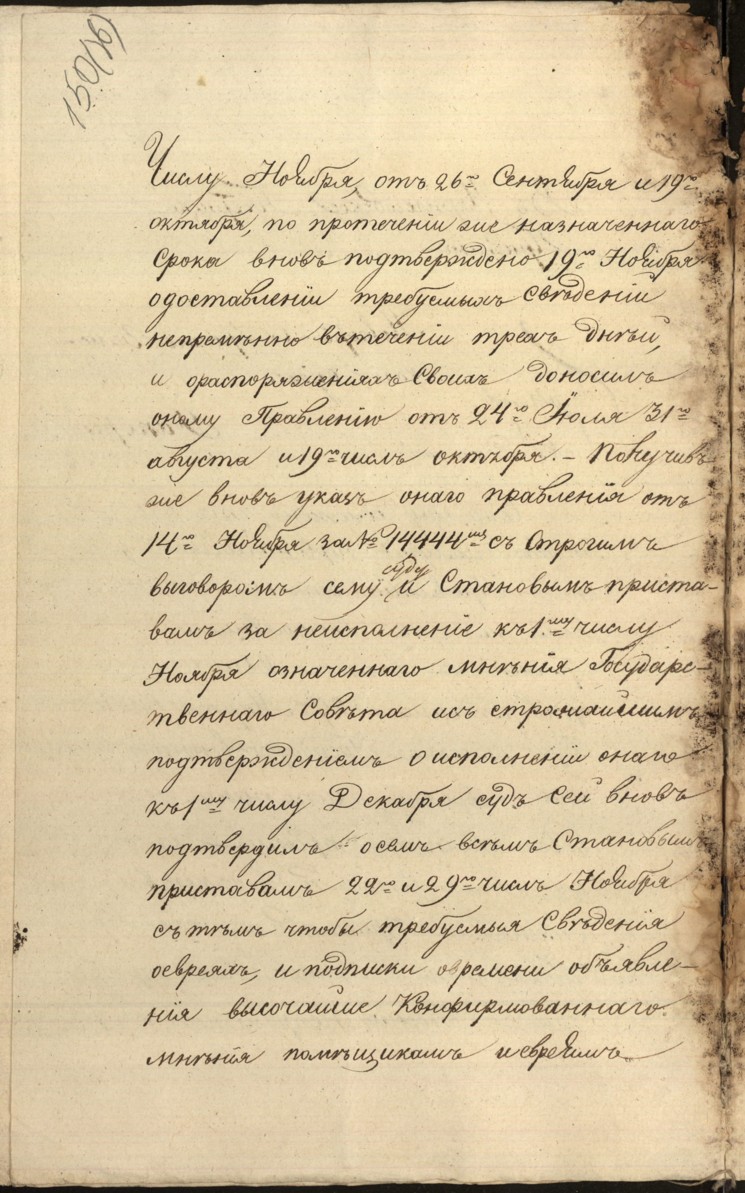 Числу Ноября, отъ 26го Сентября и 19го
октября, по протеченіи же назначеннаго
срока вновь подтверждено 19го Ноября
одоставленіи требуемыхъ свѣденіи
непремѣнно втеченіи трехъ днѣй,
и ораспоряженіяхъ Своихъ доносилъ
оному Правленію отъ 24го Іюля 31го
августа и 19го числъ октября. — Получивъ
же вновь указъ онаго правленія отъ
14го Ноября за № 14444мъ съ Строгимъ
выговоромъ сему суду и Становымъ приста-
вамъ за неисполненіе къ 1му числу
Ноября означеннаго мнѣнія Государс-
твеннаго Совѣта исъ строжайшимъ
подтвержденіемъ о исполненіи онаго
къ 1му числу Декабря судъ Сей вновь
подтвердилъ осемъ всѣмъ Становымъ
приставамъ 22го и 29го числъ Ноября
съ тѣмъ чтобы требуемыя Свѣденія
оевреяхъ, и подписки овремени объявле-
нія высочайше Конфирмованнаго
мнѣнія помѣщикамъ иевреямъ